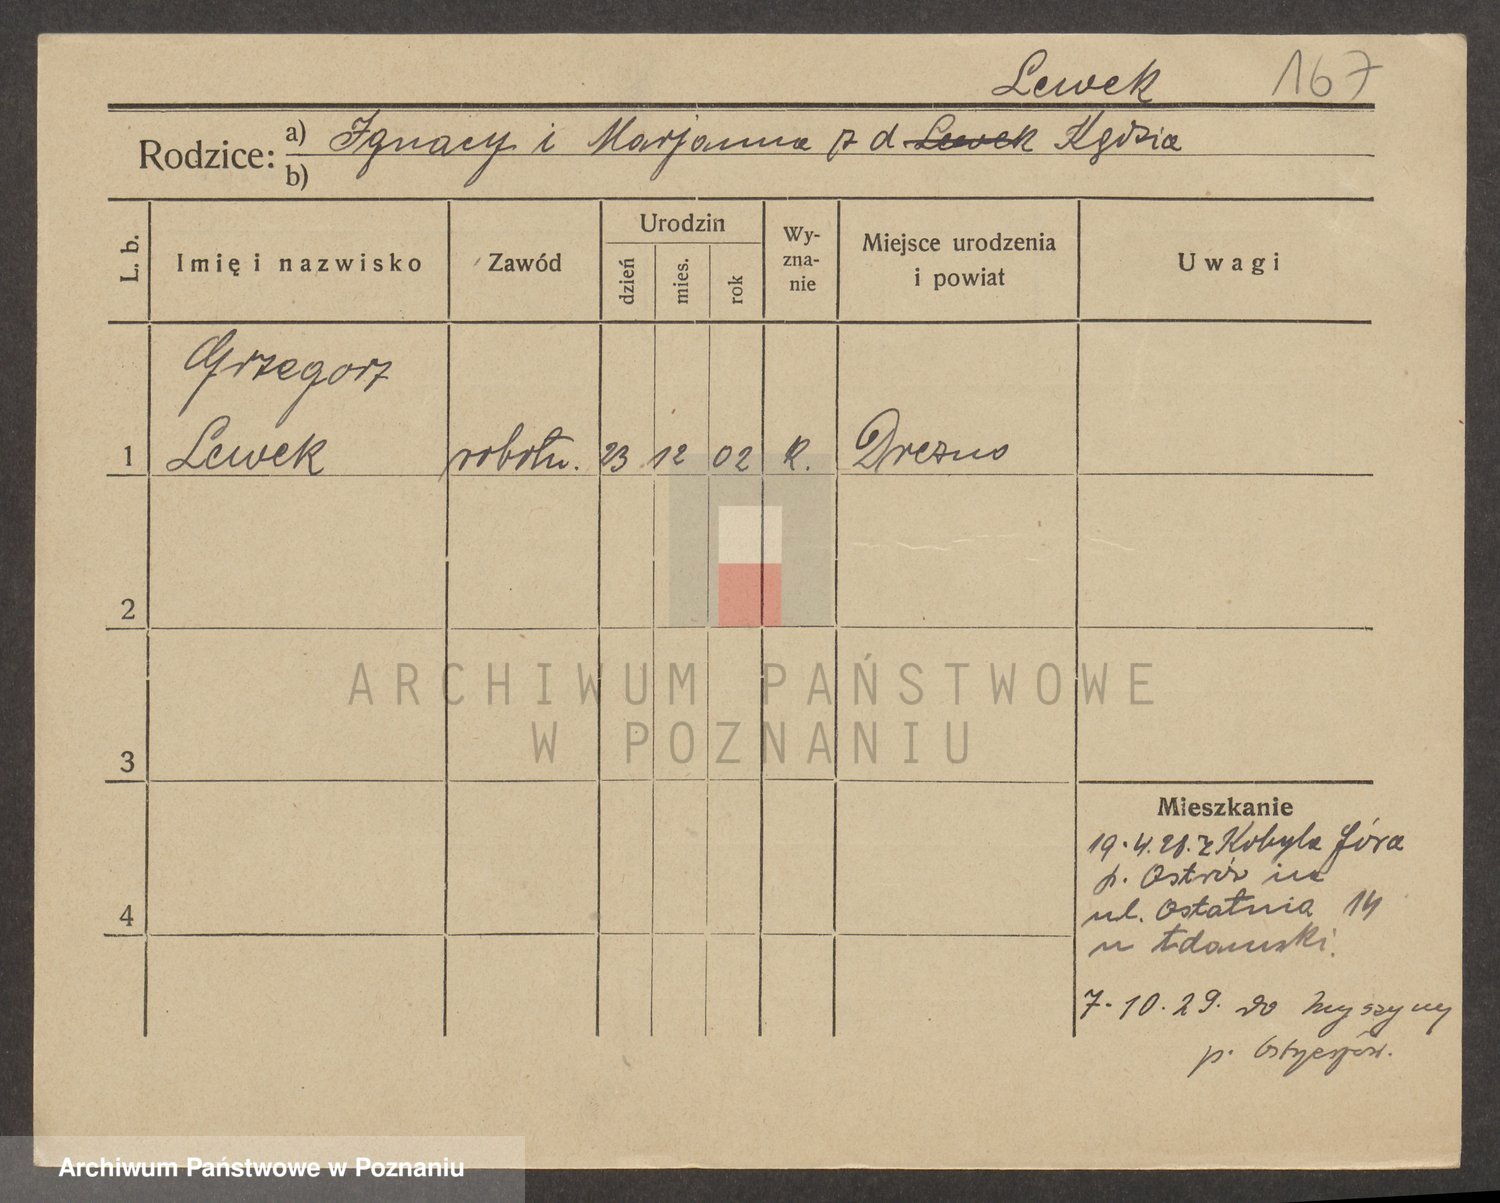 Lewek 167
Rodzice: a) Ignacy i Marjanna z d. Lewek Kędzia
b)
L. b.
Imię i nazwisko
Zawód
Urodzin
dzień
mies.
rok
Wy-
zna-
nie
Miejsce urodzenia
i powiat
Uwagi
Grzegorz
1 Lewek robotn. 23 12 02 k. Drezno
2
3
4
Mieszkanie
19.4.28. z Kobyla Góra
p. Ostrów
ul. Ostatnia 14
u Adamski.
7.10.29. do Myszyny
p. Ostrzeszów.
ARCHIWUM PAŃSTWOWE
W POZNANIU
Archiwum Państwowe w Poznaniu